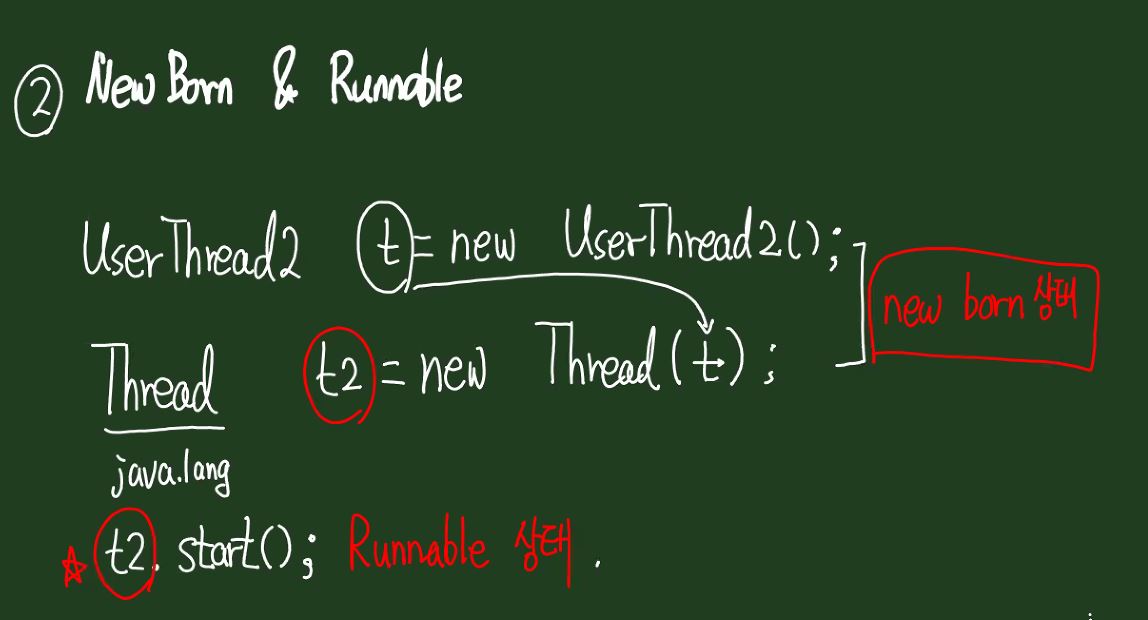 ② New Born & Runnable
UserThread2 t = new UserThread2();
Thread t2 = new Thread(t);
new born 상태
java.lang
☆ t2. start(); Runnable 상태.